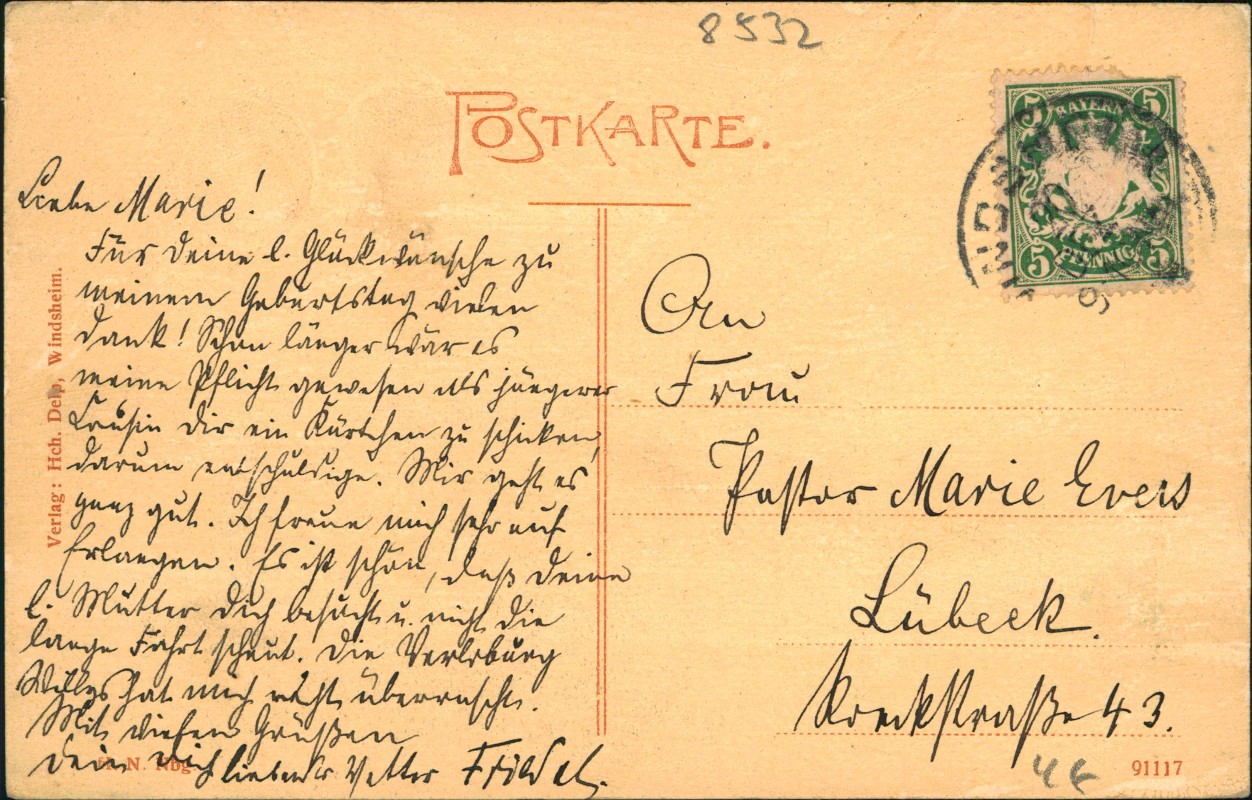 8532
POSTKARTE.
BAYERN
5 5
5 PFENNIG 5
Liebe Marie!
Für deine l. Glückwünsche zu
meinem Geburtstag vielen
Dank! Schon länger wär es
meine Pflicht gewesen als jüngerer
Cousin dir ein Kärtchen zu schicken,
darum entschuldige. Mir geht es
ganz gut. Ich freue mich sehr auf
Erlangen. Es ist schön, daß deine
l. Mutter dich besucht u. nicht die
lange Fahrt scheut. Die Verlobung
Willys hat mich recht überrascht.
Mit vielen Grüßen
dein dich liebender Vetter Friedel.
An
Frau
Pastor Marie Evers
Lübeck.
Roeckstraße 43.
Verlag: Hch. Delp, Windsheim.
N. Nbg
4 €
91117